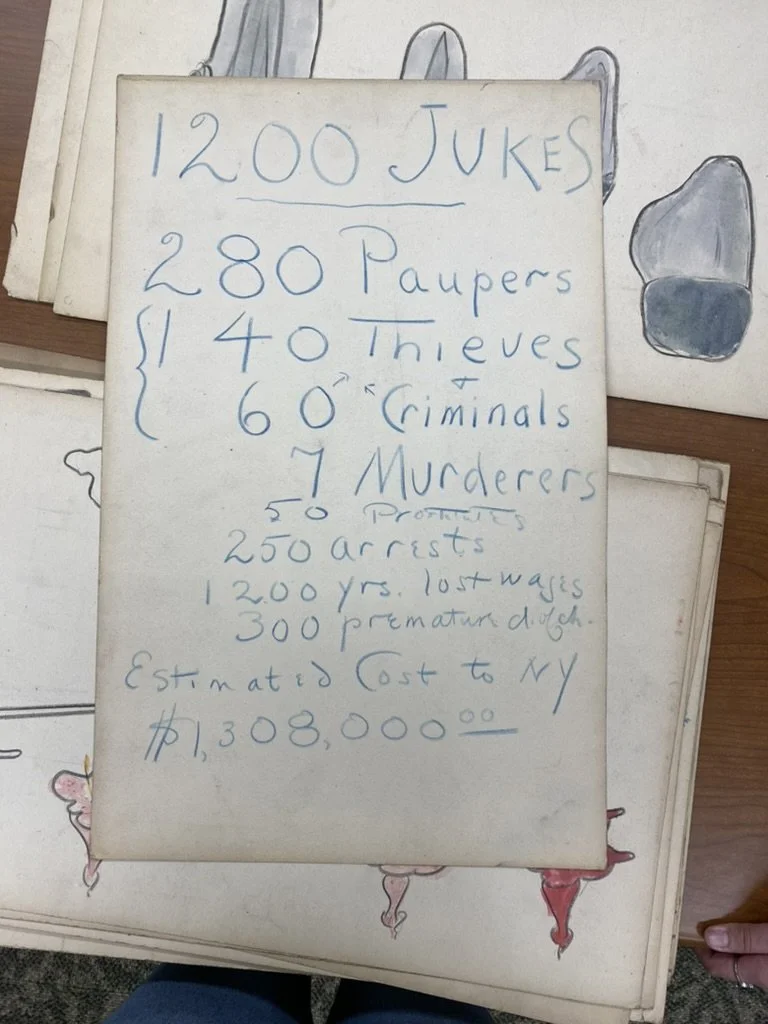 1200 JUKES
280 Paupers
140 Thieves
60 " Criminals
7 Murderers
50
250 arrests
1200 yrs. lost wages
300 premature d. of ch.
Estimated Cost to NY
$1,308,000.00